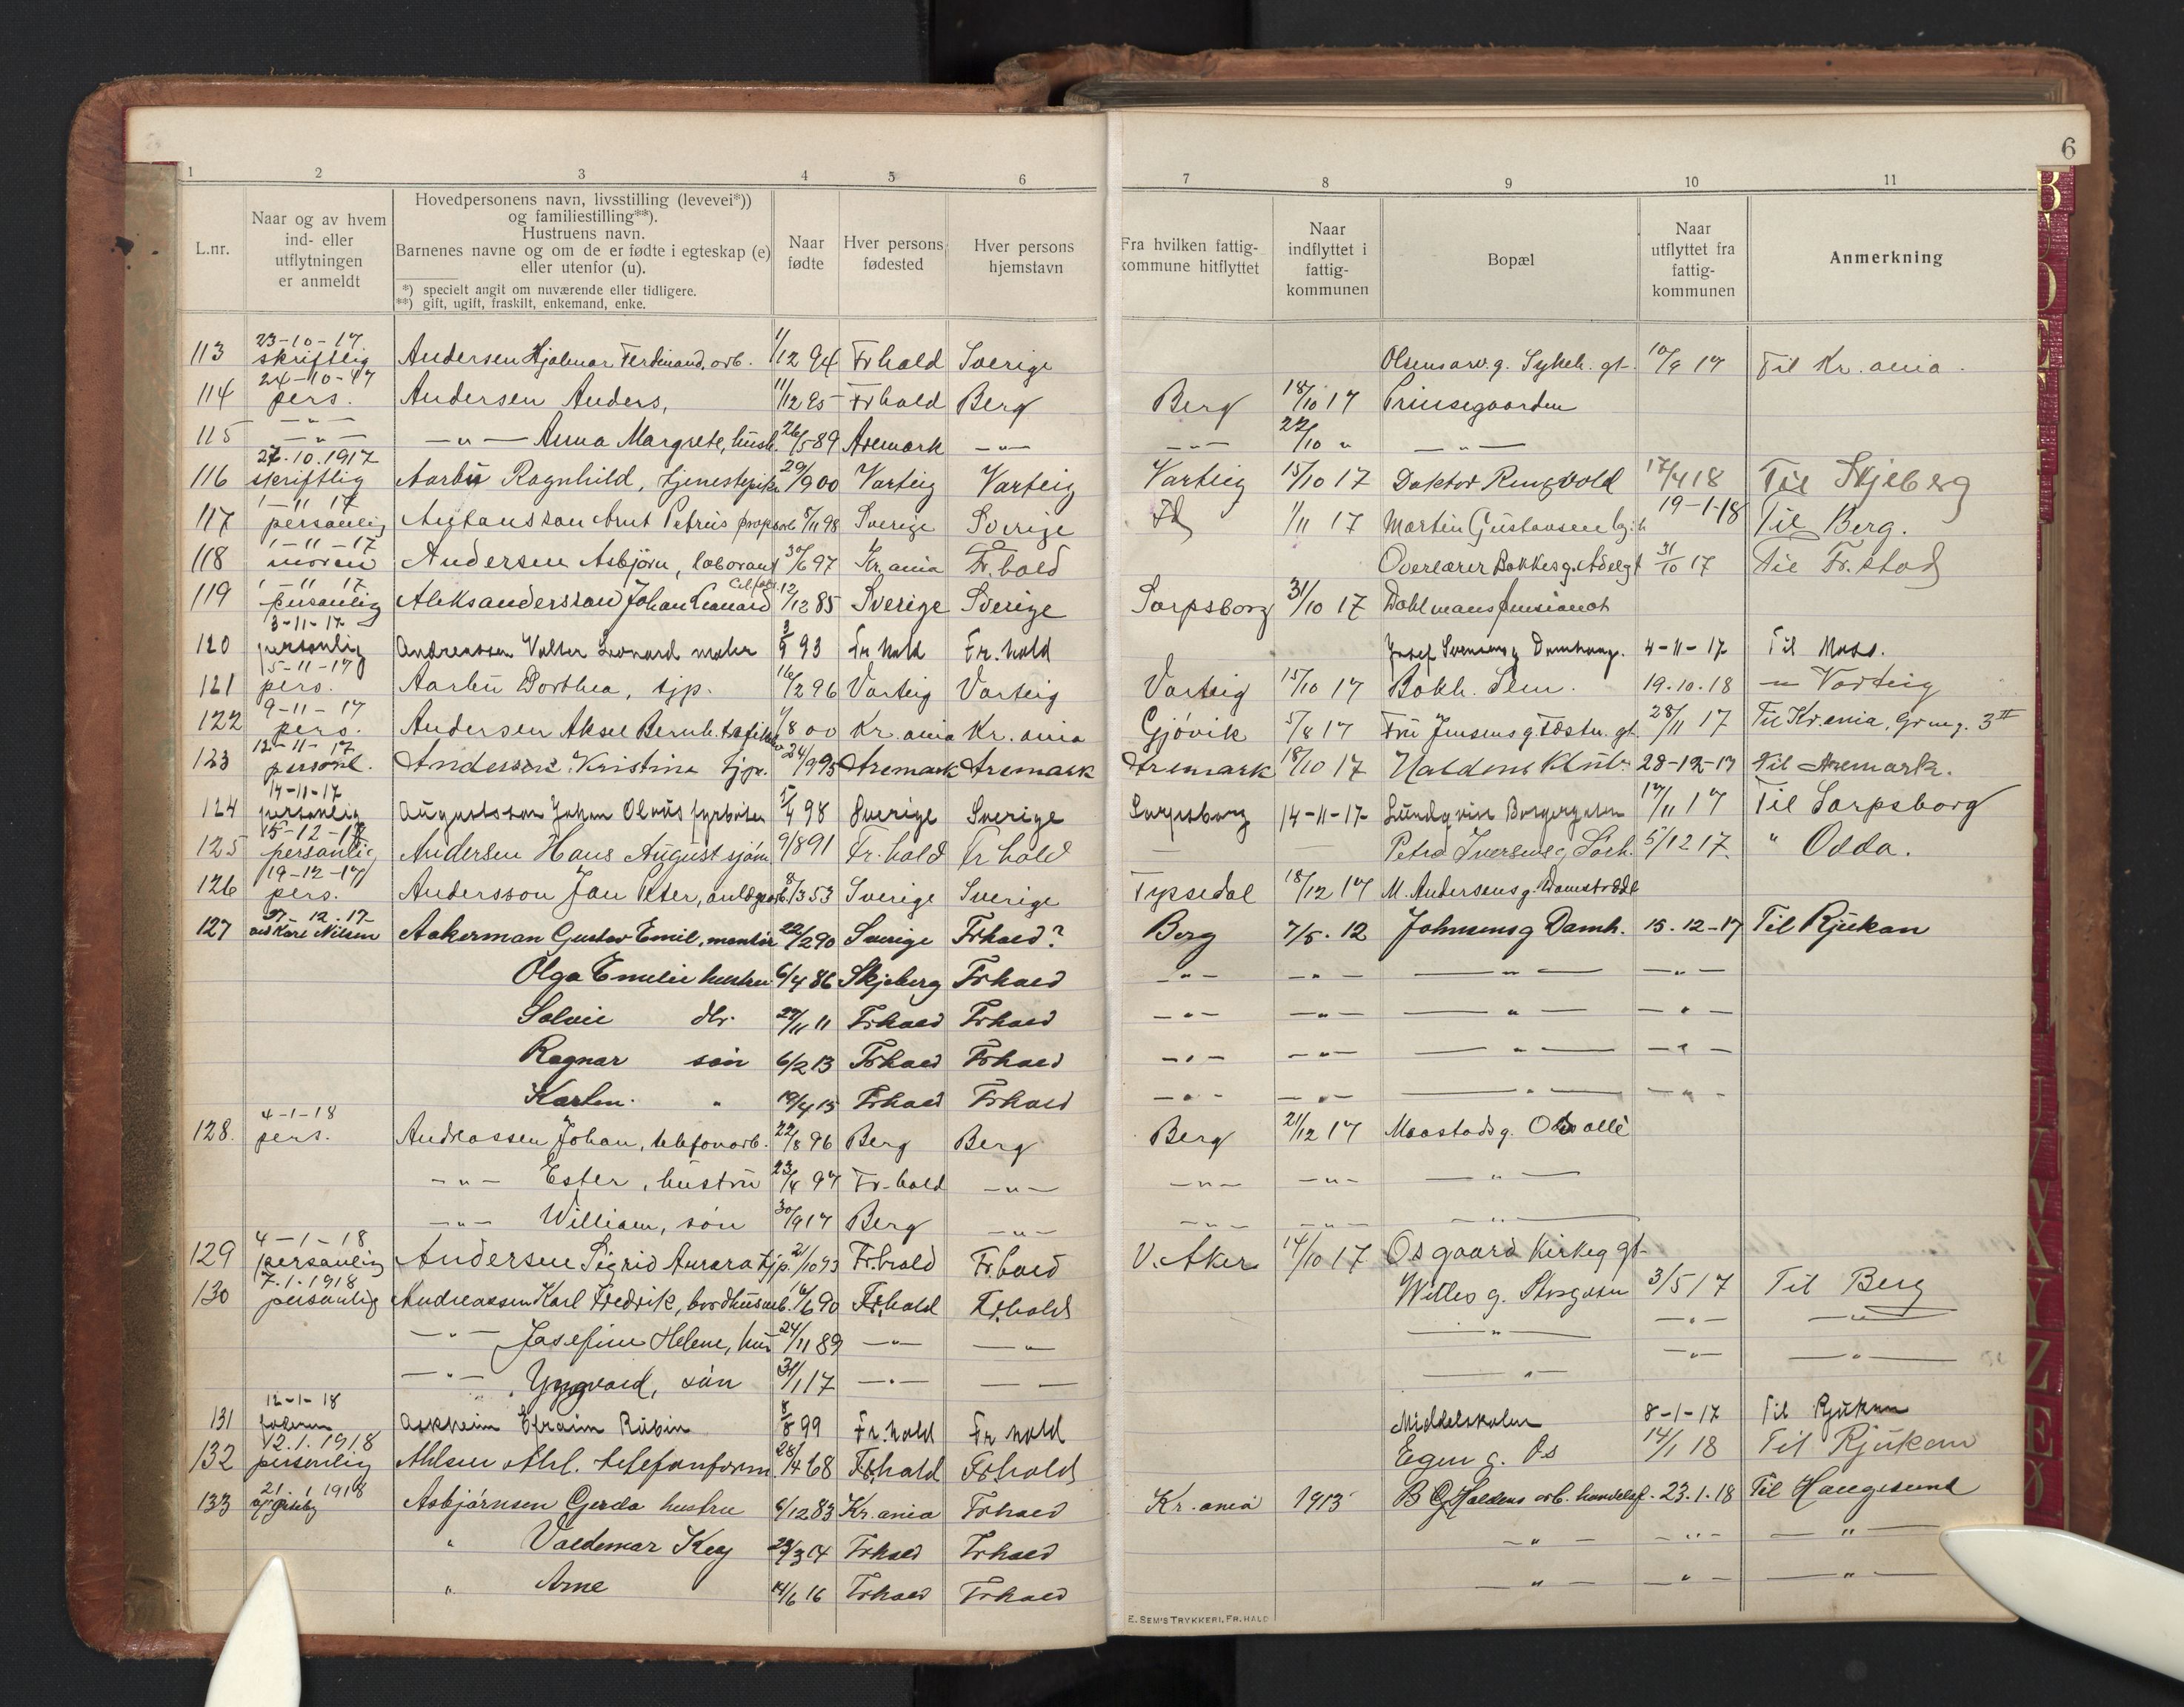 6
1 2 3 4 5 6 7 8 9 10 11
L.nr.
Naar og av hvem
ind- eller
utflytningen
er anmeldt
Hovedpersonens navn, livsstilling (levevei*))
og familiestilling**).
Hustruens navn.
Barnenes navne og om de er fødte i egteskap (e)
eller utenfor (u).
*) specielt angit om nuværende eller tidligere.
**) gift, ugift, fraskilt, enkemand, enke.
Naar
fødte
Hver persons
fødested
Hver persons
hjemstavn
Fra hvilken fattig-
kommune hitflyttet
Naar
indflyttet i
fattig-
kommunen
Bopæl
Naar
utflyttet fra
fattig-
kommunen
Anmerkning
23-10-17
113 skriftlig Andersen Hjalmar Ferdinand, arb. 1/12 94 Frhald Sverige Olsensarv. g. Sykeh. gt. 10/9 17 Til Kr.ania.
24-10-17
114 pers. Andersen Anders, 11/12 85 Frhald Berg Berg 18/10 17 Prinsegaarden
115 -"- -"- Anna Margrete, hustr. 26/5 89 Aremark -"- -"- 22/10 " -"-
27.10.1917
116 skriftlig Aarbu Ragnhild, tjenestepike 29/9 00 Varteig Varteig Varteig 15/10 17 Doktor Ringvold 17/4 18 Til Skjeberg
1-11 17
117 personlig Petrus 8/11 98 Sverige Sverige 1/11 17 Martin Gustavsen 19-1-18 Til Berg.
1-11-17
118 moren Andersen Asbjørn, laborant 30/6 97 Kr.ania Fr.hald Overlærer Bakkes g. Adelgt 31/10 17 Til Fr.stad
1-11 17
119 personlig Aleksandersson Johan Leonard 12/12 85 Sverige Sverige Sarpsborg 31/10 17 Dahlmans pensionat
3-11-17
120 personlig Andreassen Valter Leonard maler 3/9 93 Fr hald Fr. hald Josef Svensens g Damhaug. 4-11-17 Til Moss.
5-11-17
121 pers. Aarbu Dorthea, tjp. 16/2 96 Varteig Varteig Varteig 15/10 17 Bokh. Lien. 19.10.18 -"- Varteig
9-11-17
122 pers. Andersen Aksel Bernh. 1/8 00 Kr.ania Kr.ania Gjøvik 5/8 17 Fru Jensens g Tostr. gt. 28/11 17 Til Kr.ania, 3 II
12-11-17
123 personl. Andersen Kristine tjp. 24/9 95 Aremark Aremark Aremark 18/10 17 Haldens Klub. 28-12-17 Til Aremark.
14-11-17
124 personlig Augustsson Johan Olaus fyrbøter 5/4 98 Sverige Sverige Sarpsborg 14-11-17 Lundqvist Borgergaten 17/11 17 Til Sarpsborg
15-12-17
125 personlig Andersen Hans August sjøm. 9/8 91 Fr.hald Fr hald — — Petra Iversens g, 5/12 17. " Odda.
19-12-17
126 pers. Andersson Jan Peter, anlægsarb. 8/3 53 Sverige Sverige Tyssedal 18/12 17 M. Andersens g. Damstrædet
27-12-17-
127 ved Karl Nilsen Aakerman Gustav Emil, montør 22/2 90 Sverige Frhald? Berg 7/5. 12 Johnsens g Damh. 15.12-17 Til Rjukan
Olga Emilie hustru 6/4 86 Skjeberg Frhald -"- -"- -"- -"-
Solvei dtr. 27/11 11 Frhald Frhald -"- -"- -"- -"-
Ragnar søn 6/2 13 Frhald Frhald -"- -"- -"- -"-
Karlm. " 19/4 15 Frhald Frhald -"- -"- -"- -"-
4-1-18
128. pers. Andreassen Johan, telefonarb. 22/8 96 Berg Berg Berg 21/12 17 Maastads g. Os allé
-"- Ester, hustru 23/4 97 Fr-hald -"- -"- -"- -"-
-"- William, søn 30/9 17 Berg -"- -"- -"- -"-
4-1-18
129 personlig Andersen Sigrid Aurora tjp. 2/10 93 Fr.hald Fr.hald V. Aker 14/10 17 Osgaard Kirkeg gt-
7.1.1918
130 personlig Andreassen Karl Fredrik, bordhusarb. 16/6 90 Fr.hald Fr.hald Willes g. Storgaten 3/5 17 Til Berg
-"- Josefine Helene, hus 24/11 89 -"- -"- -"- -"- -"-
-"- Yngvard, søn 31/1 17 -"- — — -"- -"- -"-
12-1-18
131 faderen Askheim Efraim Rubin 8/8 99 Fr.hald Fr hald Middelskolen 8-1-17 Til Rjukan
12.1.1918
132 personlig Ahlsen Ahl. telefonform 28/4 68 Fr.hald Frhald Egen g. Os 14/1 18 Til Rjukan
21.1 1918
133 Asbjørnsen Gerda hustru 6/12 83 Kr.ania Frhald Kr.ania 1913 B G Haldens arb. handelsf. 23.1.18 Til Haugesund
" Valdemar Key 29/3 14 Frhald Frhald -"- -"- -"-
" Arne 14/6 16 Frhald Frhald -"- -"- -"-
E. SEM'S TRYKKERI, FR.HALD